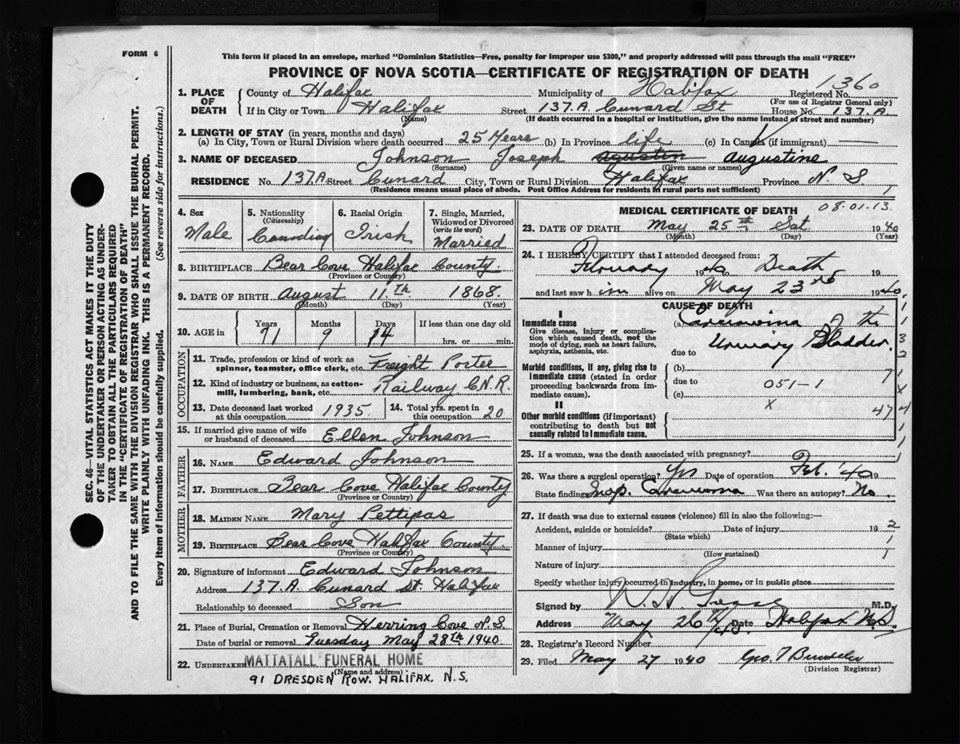 FORM 6
This form if placed in an envelope, marked "Dominion Statistics—Free, penalty for improper use $300," and properly addressed will pass through the mail "FREE"
PROVINCE OF NOVA SCOTIA—CERTIFICATE OF REGISTRATION OF DEATH
SEC. 46—VITAL STATISTICS ACT MAKES IT THE DUTY
OF THE UNDERTAKER OR PERSON ACTING AS UNDER-
TAKER TO OBTAIN ALL THE PARTICULARS REQUIRED
IN THE "CERTIFICATE OF REGISTRATION OF DEATH"
AND TO FILE THE SAME WITH THE DIVISION REGISTRAR WHO SHALL ISSUE THE BURIAL PERMIT.
WRITE PLAINLY WITH UNFADING INK. THIS IS A PERMANENT RECORD.
Every item of information should be carefully supplied. (See reverse side for instructions.)
1. PLACE OF DEATH County of Halifax Municipality of Halifax Registered No. 1360
(For use of Registrar General only)
If in City or Town Halifax Street 137.A. Cunard St House No. 137.A.
(Name) (If death occurred in a hospital or institution, give the name instead of street and number)
2. LENGTH OF STAY (in years, months and days)
(a) In City, Town or Rural Division where death occurred 25 Years (b) In Province life (c) In Canada (if immigrant) —
3. NAME OF DECEASED Johnson Joseph Agusten Augustine
(Surname) (Given name or names)
RESIDENCE No. 137A Street Cunard City, Town or Rural Division Halifax Province N. S
(Residence means usual place of abode. Post Office Address for residents in rural parts not sufficient)
4. Sex Male
5. Nationality (Citizenship) Canadian
6. Racial Origin Irish
7. Single, Married, Widowed or Divorced (write the word) Married
8. BIRTHPLACE Bear Cove Halifax County
(Province or Country)
9. DATE OF BIRTH August 11th 1868
(Month) (Day) (Year)
10. AGE in Years Months Days If less than one day old
71 9 14 hrs. or min.
OCCUPATION
11. Trade, profession or kind of work as spinner, teamster, office clerk, etc. Freight Porter
12. Kind of industry or business, as cotton-mill, lumbering, bank, etc. Railway C.N.R.
13. Date deceased last worked at this occupation 1935
14. Total yrs. spent in this occupation 20
15. If married give name of wife or husband of deceased Ellen Johnson
FATHER
16. NAME Edward Johnson
17. BIRTHPLACE Bear Cove Halifax County
(Province or Country)
MOTHER
18. MAIDEN NAME Mary Pettipas
19. BIRTHPLACE Bear Cove Halifax County
(Province or Country)
20. Signature of informant Edward Johnson
Address 137.A. Cunard St. Halifax
Relationship to deceased Son
21. Place of Burial, Cremation or Removal Herring Cove N.S.
Date of burial or removal Tuesday May 28th 1940
22. UNDERTAKER MATTATALL FUNERAL HOME
(Name and address)
91 DRESDEN ROW. HALIFAX, N.S.
MEDICAL CERTIFICATE OF DEATH 08.01.13.
23. DATE OF DEATH May 25th Sat 1940
(Month) (Day) (Year)
24. I HEREBY CERTIFY that I attended deceased from:
to Death 19
and last saw him alive on May 23rd 1940
CAUSE OF DEATH
I
Immediate cause (a) Carcinoma of the
Give disease, injury or complication which caused death, not the mode of dying, such as heart failure, asphyxia, asthenia, etc.
Urinary Bladder.
due to
Morbid conditions, if any, giving rise to immediate cause (stated in order proceeding backwards from immediate cause).
(b)
due to 051-1
(c)
II
Other morbid conditions (if important) contributing to death but not causally related to immediate cause.
x
47
25. If a woman, was the death associated with pregnancy?
26. Was there a surgical operation? Yes Feb. 40
State findings Inop. Carcinoma Was there an autopsy? No.
27. If death was due to external causes (violence) fill in also the following:—
Accident, suicide or homicide? Date of injury 19
(State which)
Manner of injury
(How sustained)
Nature of injury
Specify whether injury occurred in industry, in home, or in public place
Signed by M.D.
Address May 26th/40 Date Halifax N.S.
28. Registrar's Record Number
29. Filed May 27 1940
(Division Registrar)